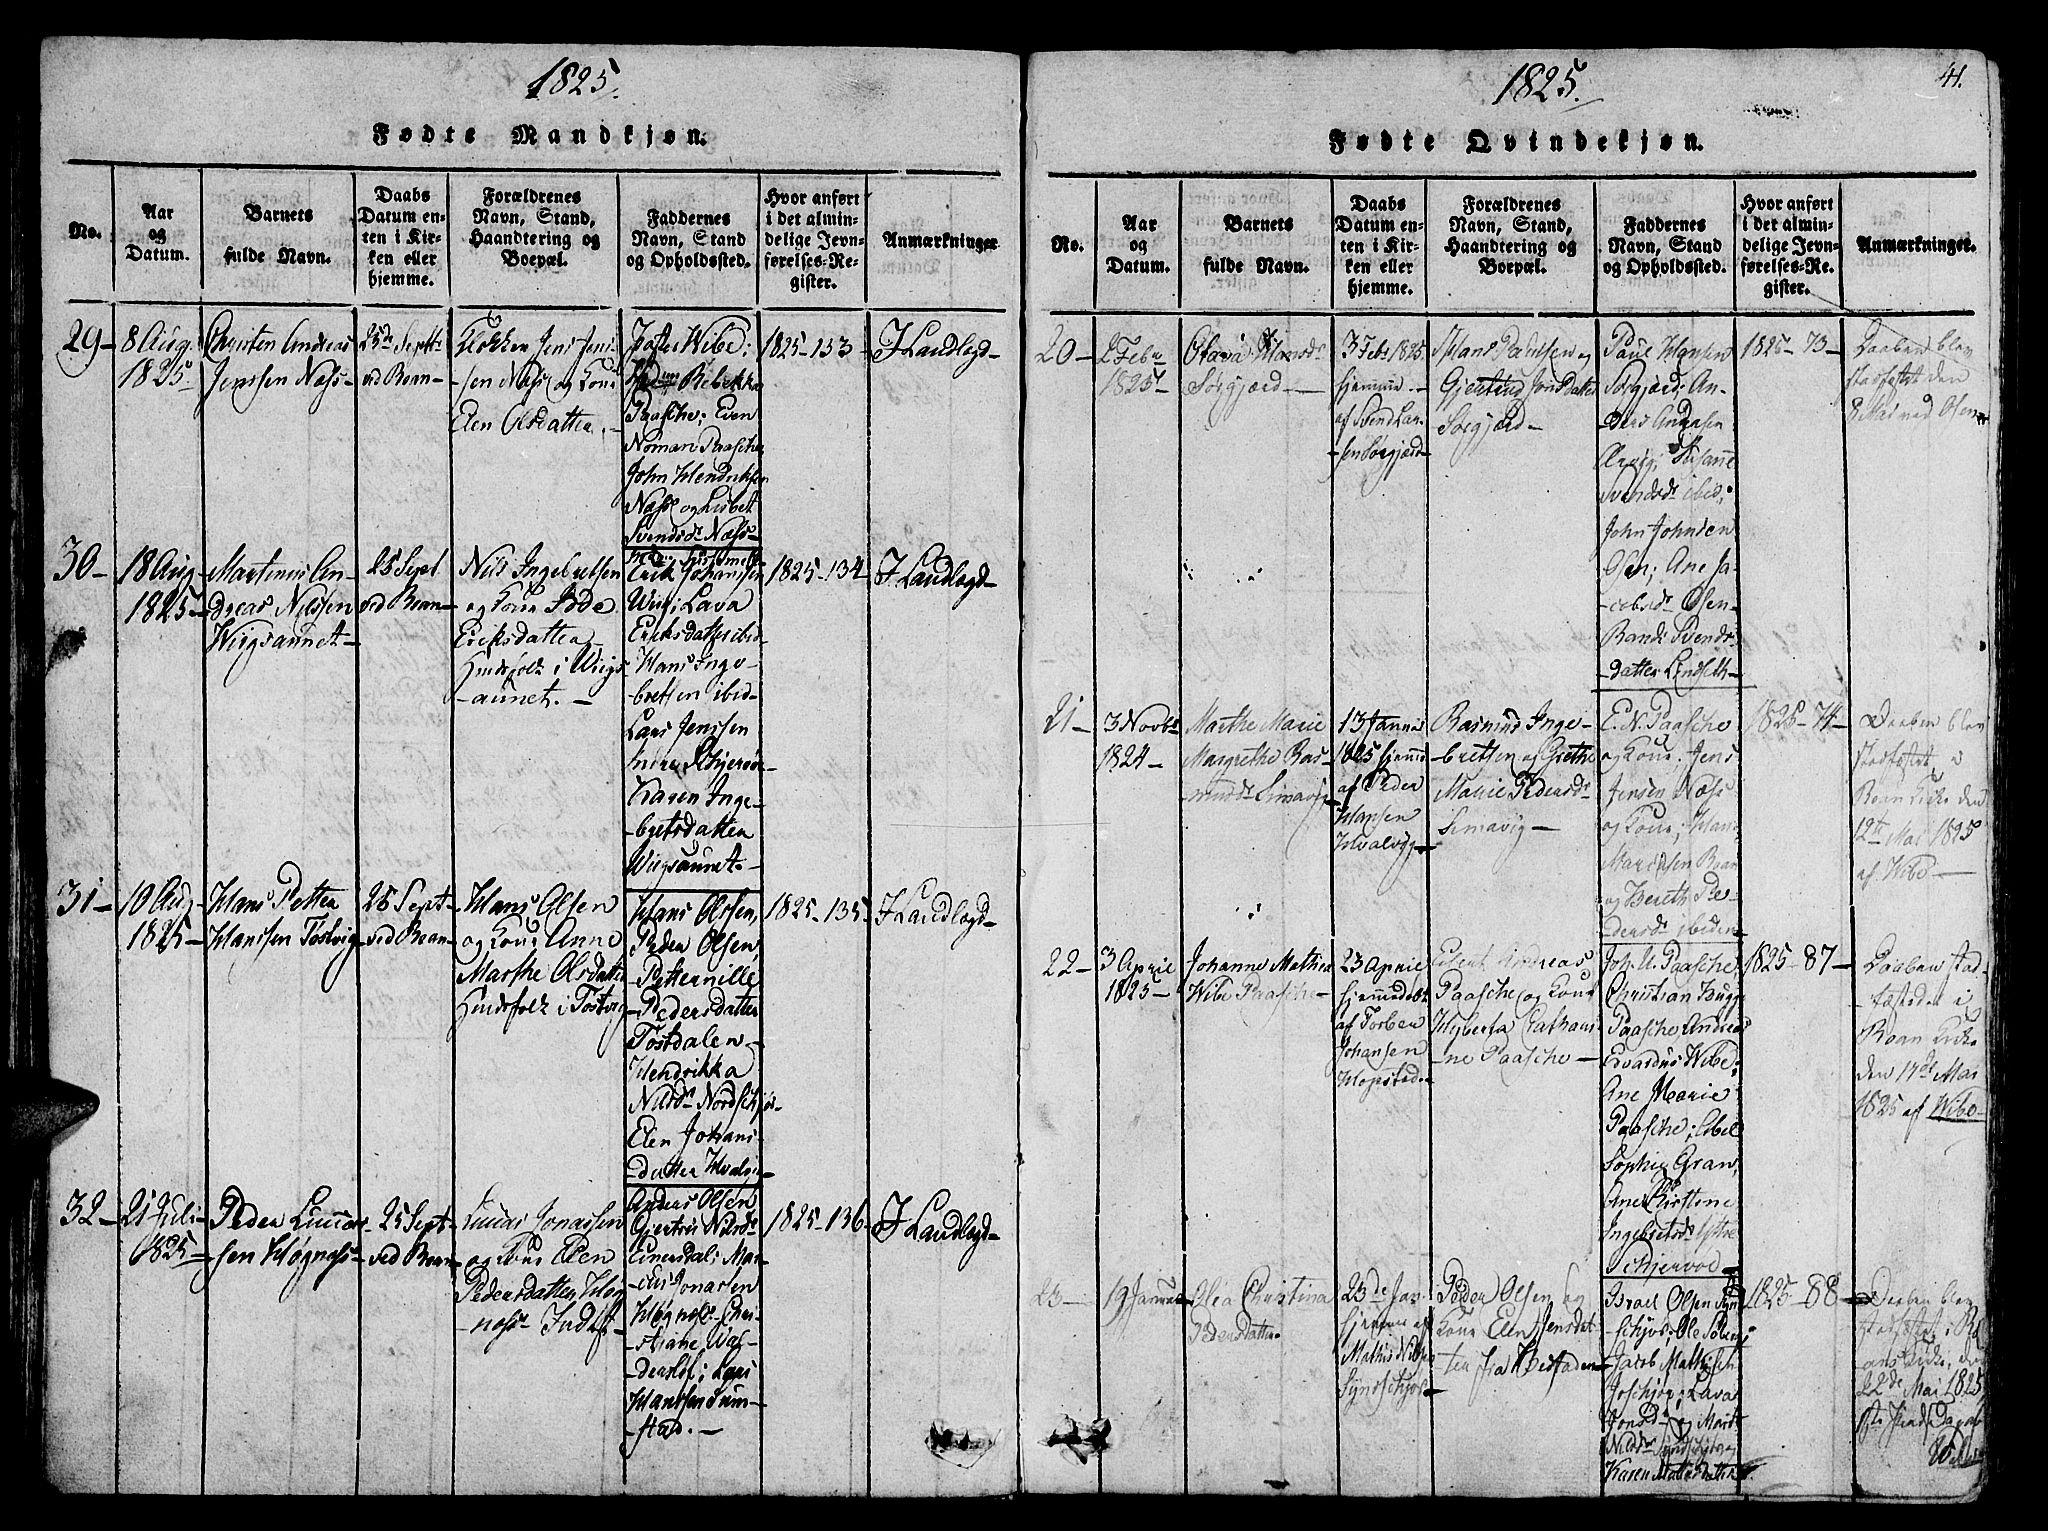 1825.
Fødte Mandkjøn.
No.
Aar
og
Datum.
Barnets
fulde Navn.
Daabs
Datum en-
ten i Kir-
ken eller
hjemme.
Forældrenes
Navn, Stand,
Haandtering og
Boepæl.
Faddernes
Navn, Stand
og Opholdssted.
Hvor anført
i det almin-
delige Jevn-
førelses-Re-
gister.
Anmærkninger
29-
8 Aug.
1825
Christen Andreas
Jenssen Næss-
25de Septbr
ved Roan-
Klokker Jens Jen-
sen Næss og Kone
Elen Olsdatter. -
Wibe;
Rebekka
Paasche; Even
Noman Paasche
John Hendriksen
Næss og Lisbet
Svendsdr Næss-
1825-133-
I Landlægd-
30-
18 Aug
1825-
Martinus An-
dreas Nilssen
Wiigsaunet-
25 Sept
ved Roan-
Nils Ingebretsen
og Kone
Eriksdatter
Huusfolk i Wiigs
-aunet. -
Erik Johanssen
Wiig; Lava
Eriksdatter ibid
Hans Inge-
-bretsen ibid-
Lars Jenssen
Indre Schjervøe-
Karen Inge-
-bretsdatter
Wiigsaunet-
1825-134-
I Landlægd-
31-
10 Aug
1825-
Hans Petter
Hanssen Tostvig-
25 Sept-
ved Roan-
Hans Olsen
og Kone Anne
Marthe Olsdatter
Huusfolk i Tostvig
Hans Olssen,
Peder Olsen,
Petternille
Pedersdatter
Tostdalen-
Hendrikka
Nilsdr Nordschjør-
Elen Johans-
datter Hvalvig-
1825-135-
I Landlægd-
32-
21 Juli-
1825-
Peder Lucas-
sen Høgnæss-
25 Sept-
ved Roan-
Lucas Jonassen
og Kone Elen
Pedersdatter Høg-
næss Inderst-
Anders Olsen
Gjertrú Nilsdr
Einersdal; Mar-
cus Jonasen
Høgnæss-
Lars
Hanssen Sum-
stad. -
1825-136-
I Landlægd-
1825.
41.
Fødte Qvindekjøn.
No.
Aar
og
Datum.
Barnets
fulde Navn.
Daabs
Datum en-
ten i Kir-
ken eller
hjemme.
Forældrenes
Navn, Stand,
Haandtering og
Boepæl.
Faddernes
Navn, Stand
og Opholdssted.
Hvor anført
i der almin-
delige Jevn-
førelses-Re-
gister.
Anmærkninger.
20-
2 Febr
1825
Olava Hansdr
Sørgjærd-
3 Febr 1825
hjemme-
af Svend Lar-
sen Sørgjærd-
Hans Paulsen og
Gjertrud Jonsdatter
Sørgjærd-
Paul Hansen
Sørgjærd; An-
ders Andersen
Susanne
Svendsdr ibid;
John Johnsen
Osen; Ane Ja-
-cobsdr Osen-
Randi Svends-
datter Lindseth-
1825-73-
Daaben blev
stadfæstet den
8 Mai ved Osen
21-
3 Novbr
1824-
Marthe Marie
Margrethe Ras-
mudr Simavig-
13 Janua
1825 hjemme
af Peder
Hansen
Hvalvig-
Rasmus Inge-
bretsen og Grethe
Marie Pedersdr
Simavig-
E. N. Paasche
og Kone; Jens
Jensen Næss
og Kone; Hans
Roan
og Bereth Pe-
dersdr ibidem-
1825-74-
Daaben blev
stadfæstet i
Roan Kirke den
12te Mai 1825
af Wibe-
22-
3 April
1825-
Johanne Mathea
Wibe Paasche-
23 April
hjemmedøbt
af Torben
Johansen
Hopstad-
Andreas
Paasche og Kone
Hyberta Cathari-
ne Paasche-
Joh. N. Paasche,
Christian Bugge
Paasche, Andreas
Edvardus Wibe;
Ane Marie
Paasche; Sibel
Sophie Gran,
Ane Kirstine
Ingebretsdr Ystre
Schjervøe-
1825-87-
Daaben stad-
fæstedes i
Roan Kirke
den 17de Mai
1825 af Wibe-
23-
19 Januar
Olea Christina
Pedersdatter.
23de Jan.
hjemme af
Mathis Nilsen
Syndschjør-
Peder Olsen og
Kone Elen Jensdat-
ter fra Bestaden-
Israel Olsen Syn-
schjør; Ole
Jacob Mathisen
Lava
Jonsdr og Marit
Nilsdr
Karen
1825-88-
Daaben blev
stadfæstet i Ro-
ans Kirke, den
22de Mai 1825